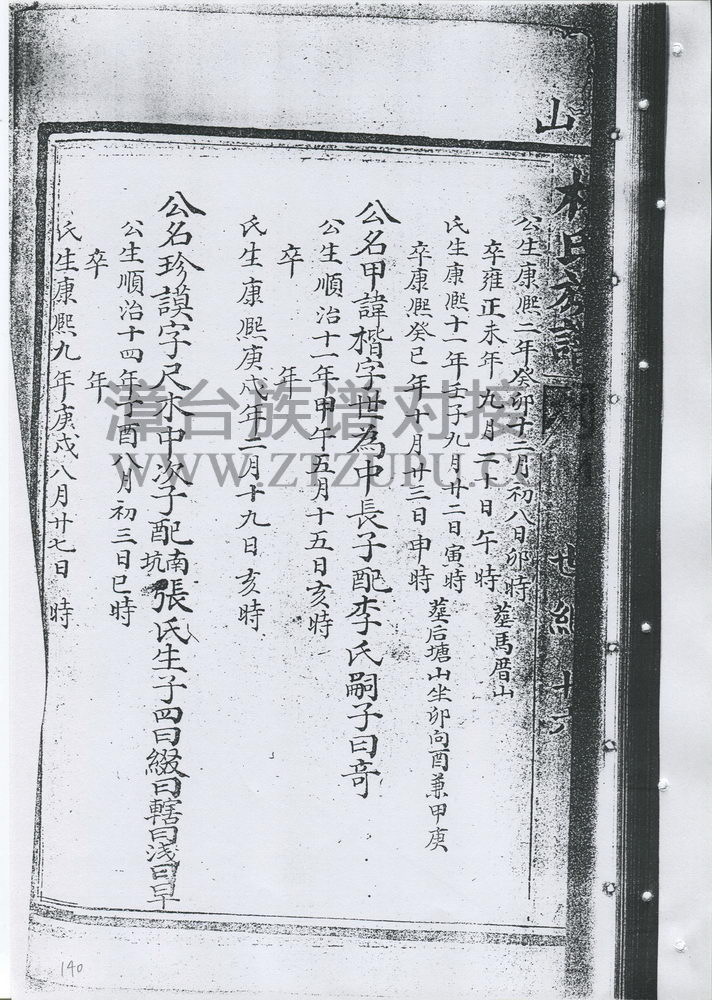 山
林氏族譜
世紀 十六
公生康熙二年癸卯十二月初八日卯時
卒雍正未年九月二十日午時 葬馬厝山
氏生康熙十一年壬子九月廿二日寅時
卒康熙癸巳年十月廿三日申時 葬后塘山坐卯向酉兼甲庚
公名甲諱楷字世為中長子配李氏嗣子曰奇
公生順治十一年甲午五月十五日亥時
卒 年
氏生康熙庚戌年二月十九日亥時
公名珍謨字尺木中次子配南坑張氏生子四曰綴曰轄曰淺曰早
公生順治十四年丁酉八月初三日巳時
卒 年
氏生康熙九年庚戌八月廿七日 時
漳台族谱对接网
WWW.ZTZUPU.COM
140